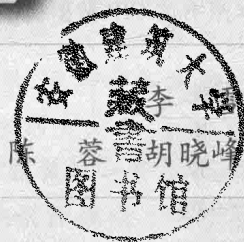 安徽建筑大学
藏書
图书馆
李
陈 蓉 胡晓峰